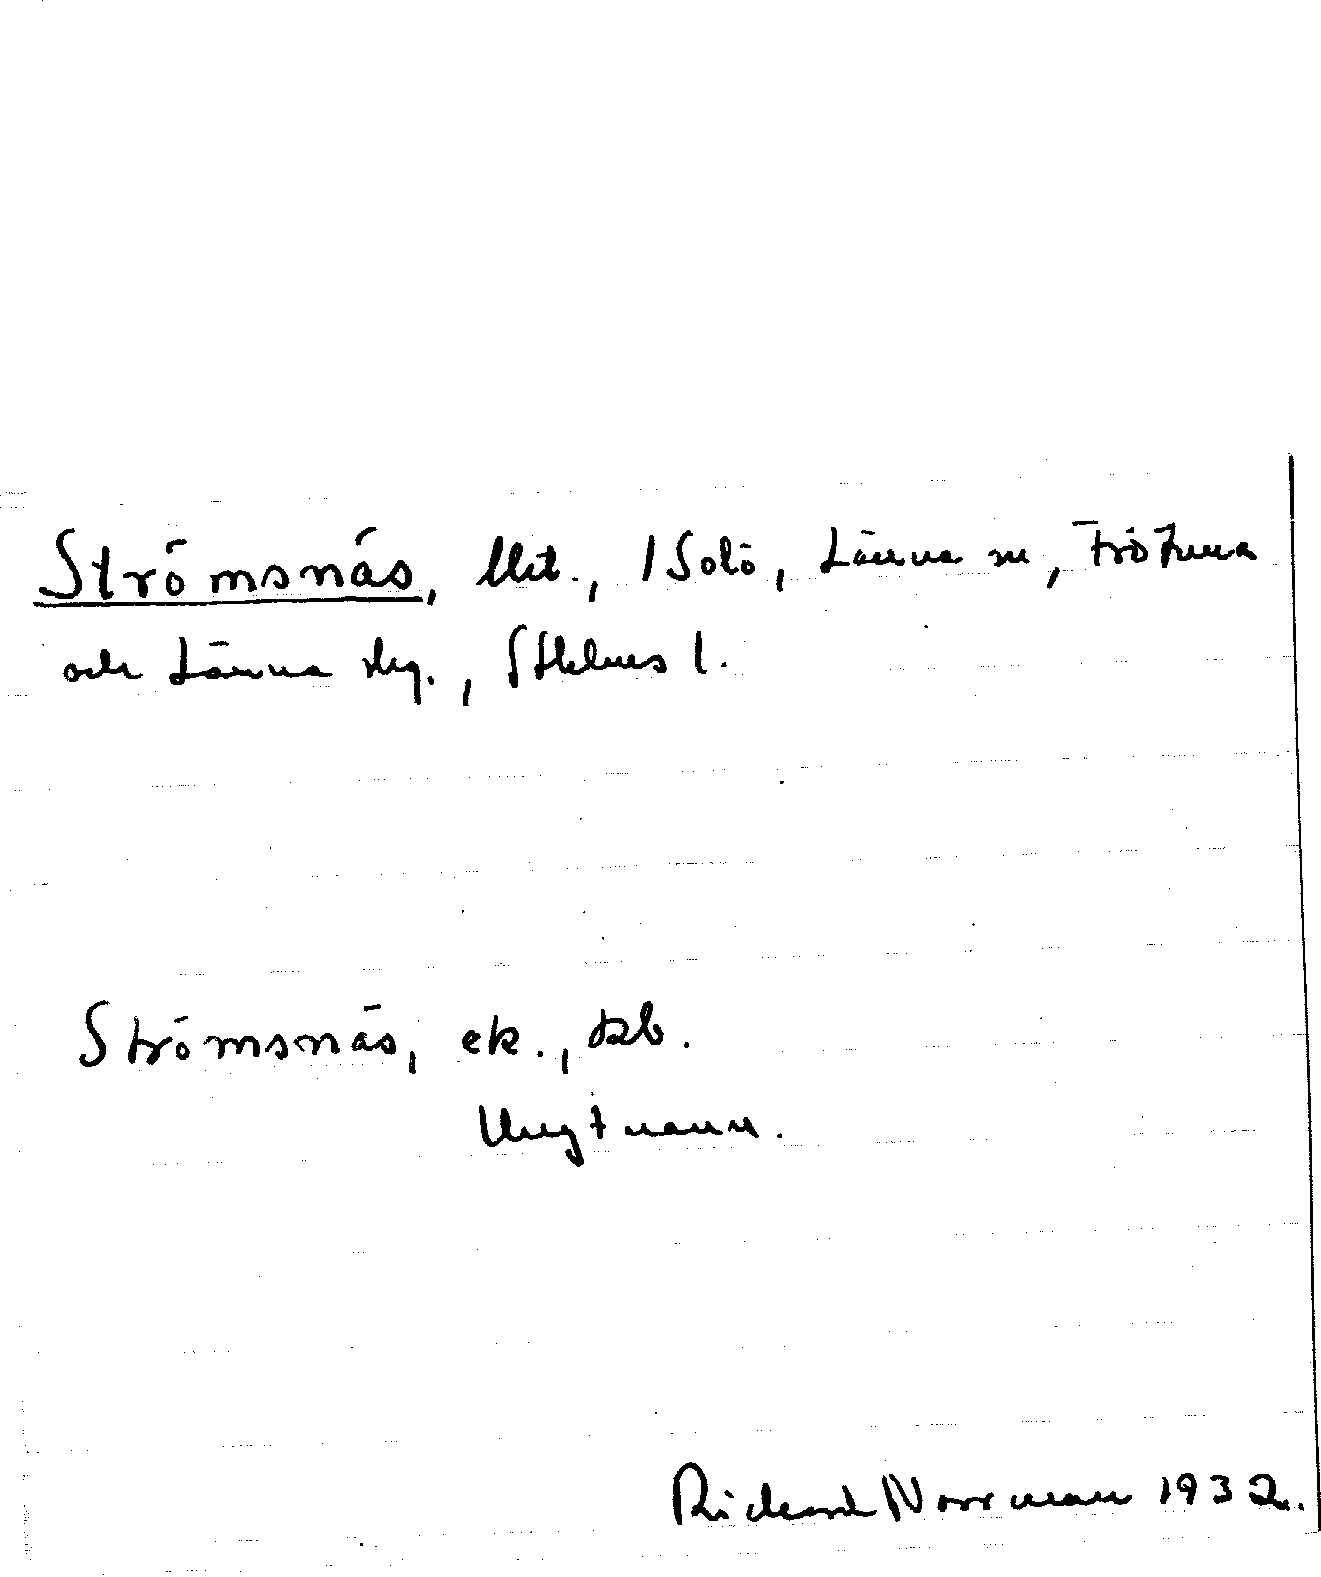 Strömsnäs, lht., 1 Solö, Länna sn, Frötuna
och Länna slg., Sthlms l.
Strömsnäs, ek., kb.
Ungtmann.
Rickard Norrman 1932.